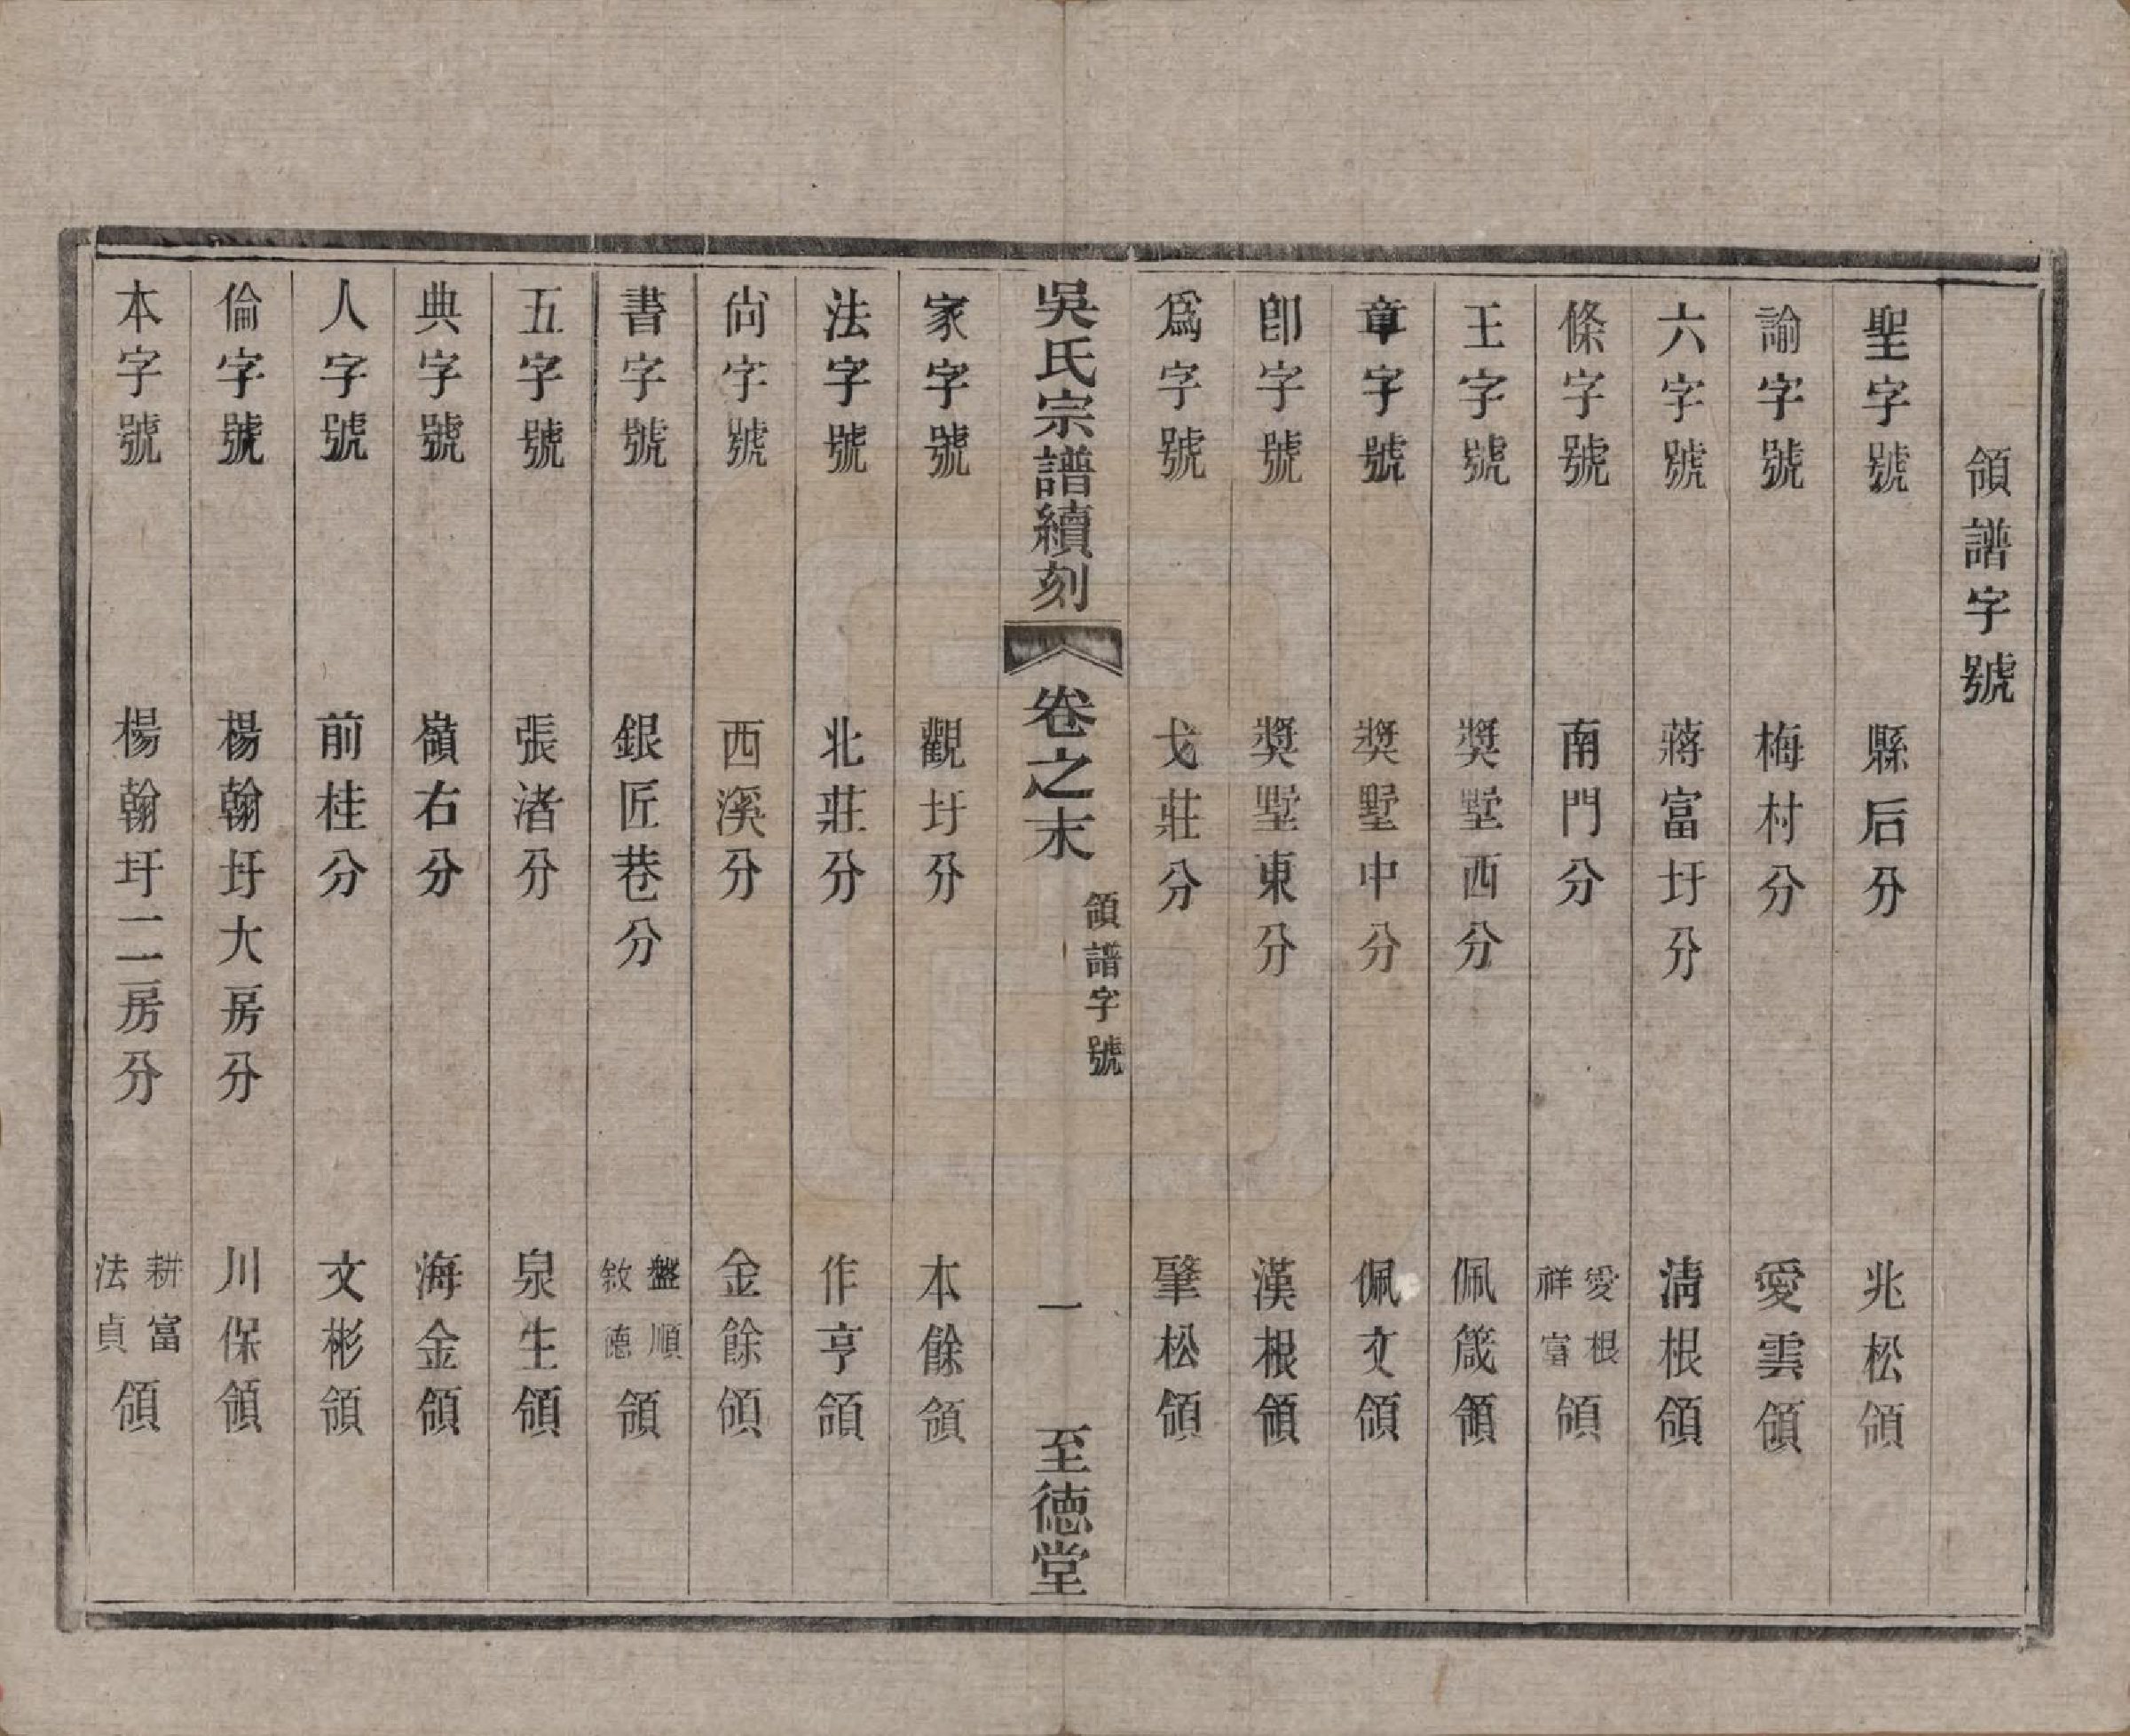 領譜字號
聖字號 縣后分 兆松領
諭字號 梅村分 愛雲領
六字號 蔣富圩分 淸根領
條字號 南門分 愛根 祥富 領
王字號 奬墅西分 佩箴領
章字號 奬墅中分 佩文領
卽字號 奬墅東分 漢根領
爲字號 戈莊分 肇松領
吳氏宗譜續刻 卷之末 領譜字號 一 至德堂
家字號 觀圩分 本餘領
法字號 北莊分 作亨領
尙字號 西溪分 金餘領
書字號 銀匠巷分 盤順 敘德 領
五字號 張渚分 泉生領
典字號 嶺右分 海金領
人字號 前桂分 文彬領
倫字號 楊翰圩大房分 川保領
本字號 楊翰圩二房分 耕富 法貞 領